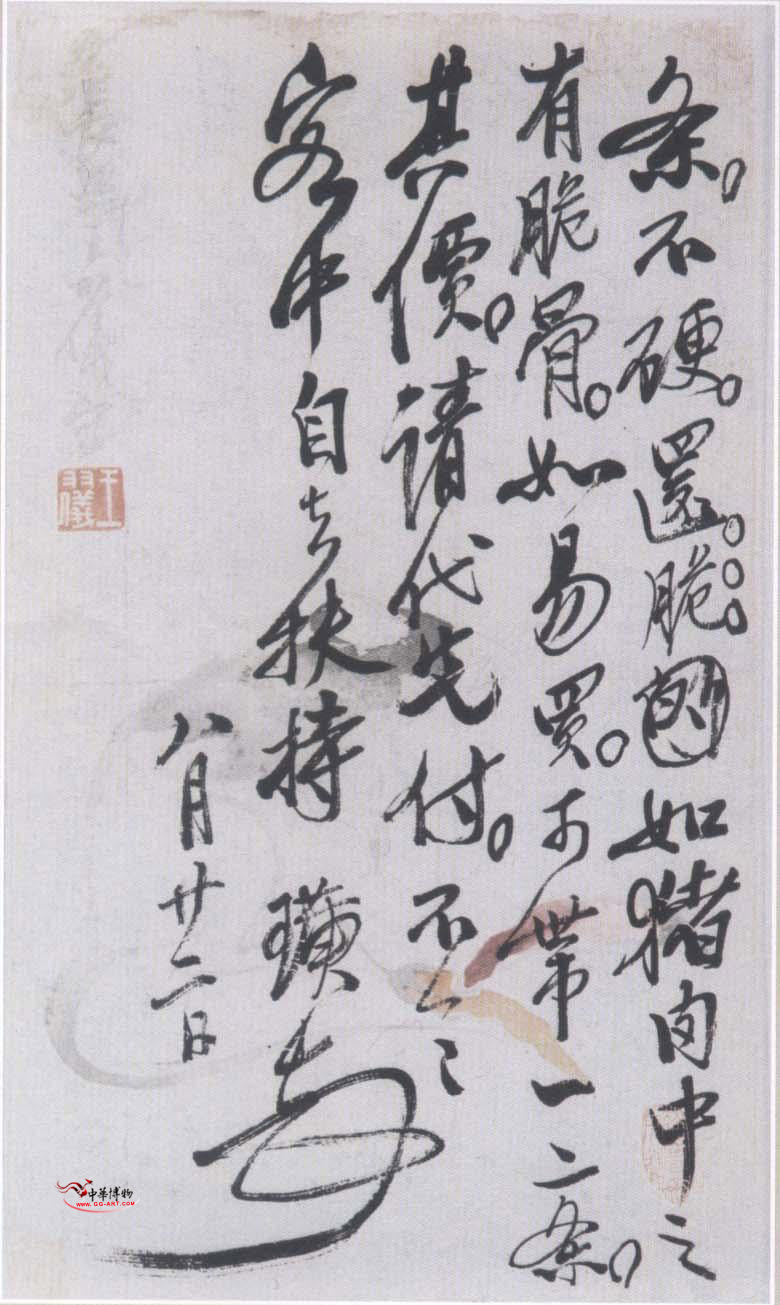 条。不硬。還。脆。。如猪肉中之
有脆骨。如易買。可带一二条。
其價。請代先付。不一一
客中自去扶持 璜 
八月廿二日
中華博物
WWW.GG-ART.COM